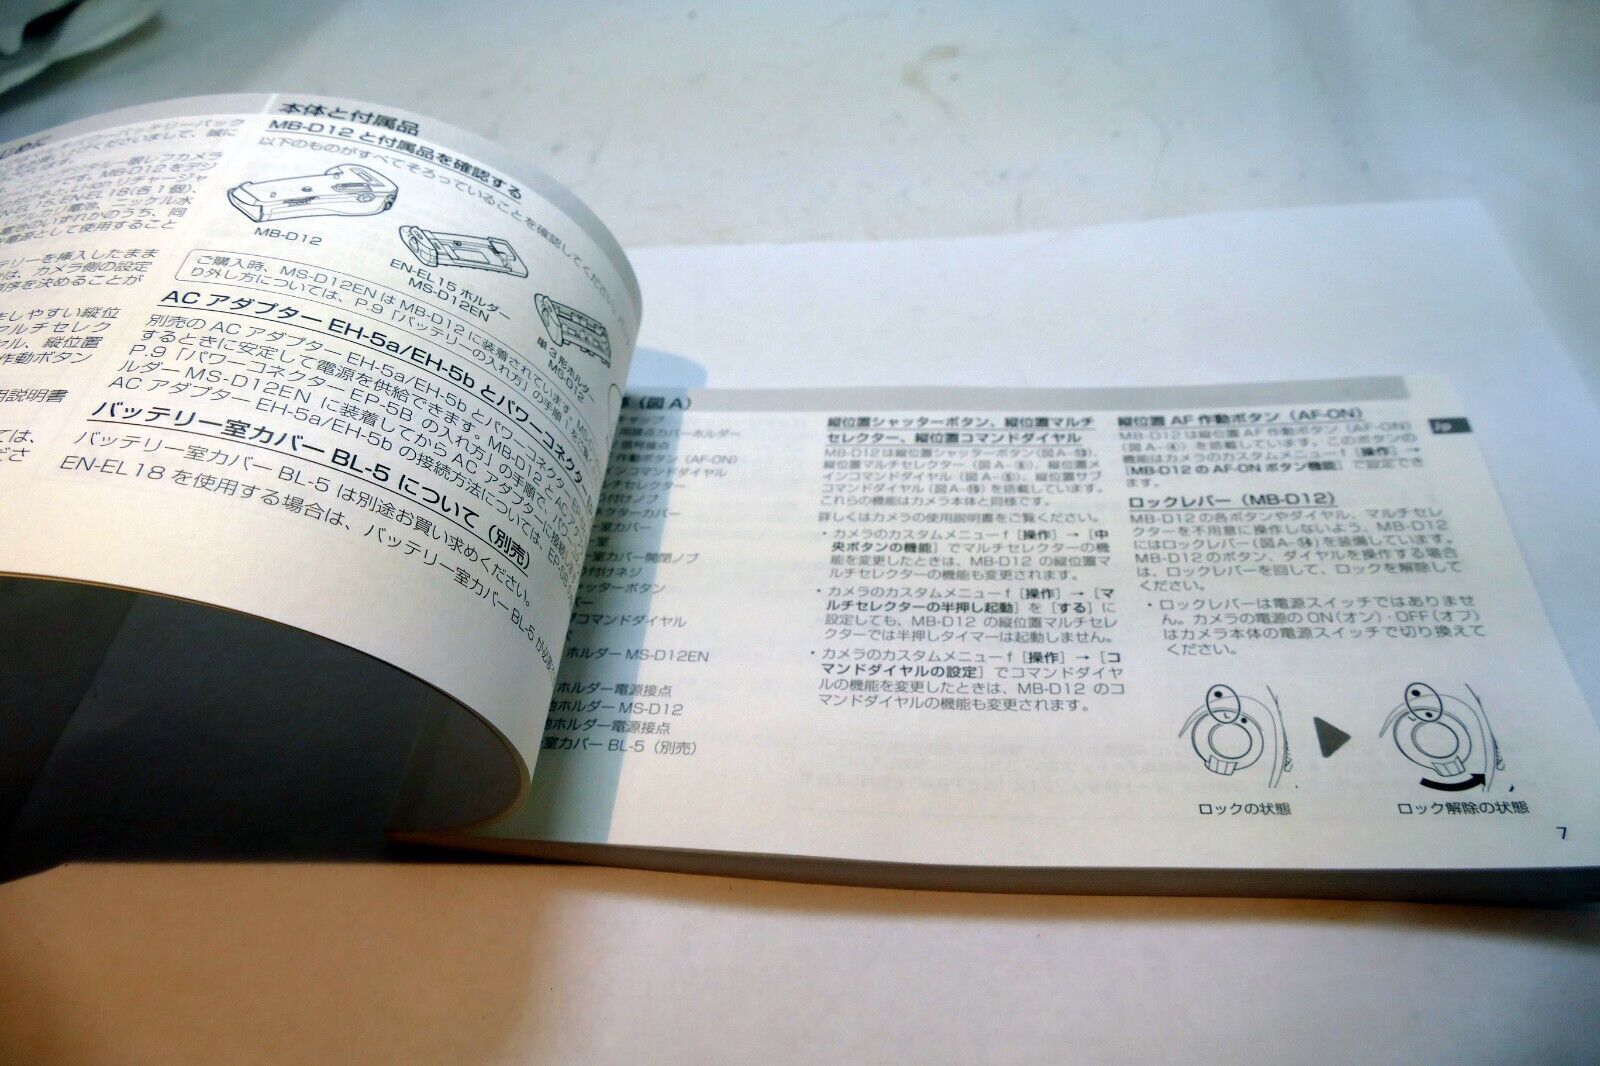 本体と付属品
MB-D12 と付属品を確認する
以下のものがすべてそろっていることを確認してください。
MB-D12
EN-EL15 ホルダー
MS-D12EN
単3形ホルダー
MS-D12
ご購入時、MS-D12ENは MB-D12 に装着されています。
り外し方については、P.9「バッテリーの入れ方」の手順
AC アダプター EH-5a/EH-5b とパワーコネクター
別売の AC アダプター EH-5a/EH-5b とパワーコネクター
するときに安定して電源を供給できます。MB-D12 と
P.9「パワーコネクター EP-5B の入れ方」の手順で、
ルダー MS-D12EN に装着してから AC アダプターに接続
AC アダプター EH-5a/EH-5b の接続方法については、EP-5B
バッテリー室カバー BL-5 について（別売）
バッテリー室カバー BL-5 は別途お買い求めください。
EN-EL18 を使用する場合は、バッテリー室カバー BL-5 が必
テリーを挿入したまま
は、カメラ側の設定
序を決めることが
しやすい縦位
ルチセレク
ル、縦位置
作動ボタン
用説明書
ては、
（図 A）
ャップ
カバーホルダー
信号接点
作動ボタン（AF-ON）
インコマンドダイヤル
ルチセレクター
り付けノブ
クターカバー
室カバー
ー室
ー室カバー開閉ノブ
り付けネジ
ャッターボタン
バー
ブコマンドダイヤル
ホルダー MS-D12EN
ホルダー電源接点
池ホルダー MS-D12
池ホルダー電源接点
室カバー BL-5（別売）
縦位置シャッターボタン、縦位置マルチ
セレクター、縦位置コマンドダイヤル
MB-D12は縦位置シャッターボタン（図A-⑬）、
縦位置マルチセレクター（図A-⑥）、縦位置メ
インコマンドダイヤル（図A-⑤）、縦位置サブ
コマンドダイヤル（図A-⑮）を搭載しています。
これらの機能はカメラ本体と同様です。
詳しくはカメラの使用説明書をご覧ください。
・カメラのカスタムメニュー f［操作］→［中
央ボタンの機能］でマルチセレクターの機
能を変更したときは、MB-D12 の縦位置マ
ルチセレクターの機能も変更されます。
・カメラのカスタムメニュー f［操作］→［マ
ルチセレクターの半押し起動］を［する］に
設定しても、MB-D12 の縦位置マルチセレ
クターでは半押しタイマーは起動しません。
・カメラのカスタムメニュー f［操作］→［コ
マンドダイヤルの設定］でコマンドダイヤ
ルの機能を変更したときは、MB-D12 のコ
マンドダイヤルの機能も変更されます。
縦位置 AF 作動ボタン（AF-ON）
MB-D12は縦位置 AF 作動ボタン（AF-ON）
（図 A-④）を搭載しています。このボタンの
機能はカメラのカスタムメニュー f［操作］→
［MB-D12 の AF-ON ボタン機能］で設定でき
ます。
ロックレバー（MB-D12）
MB-D12 の各ボタンやダイヤル、マルチセレ
クターを不用意に操作しないよう、MB-D12
にはロックレバー（図A-⑭）を装備しています。
MB-D12 のボタン、ダイヤルを操作する場合
は、ロックレバーを回して、ロックを解除して
ください。
・ロックレバーは電源スイッチではありませ
ん。カメラの電源の ON（オン）・OFF（オフ）
はカメラ本体の電源スイッチで切り換えて
ください。
ロックの状態
ロック解除の状態
Jp
7